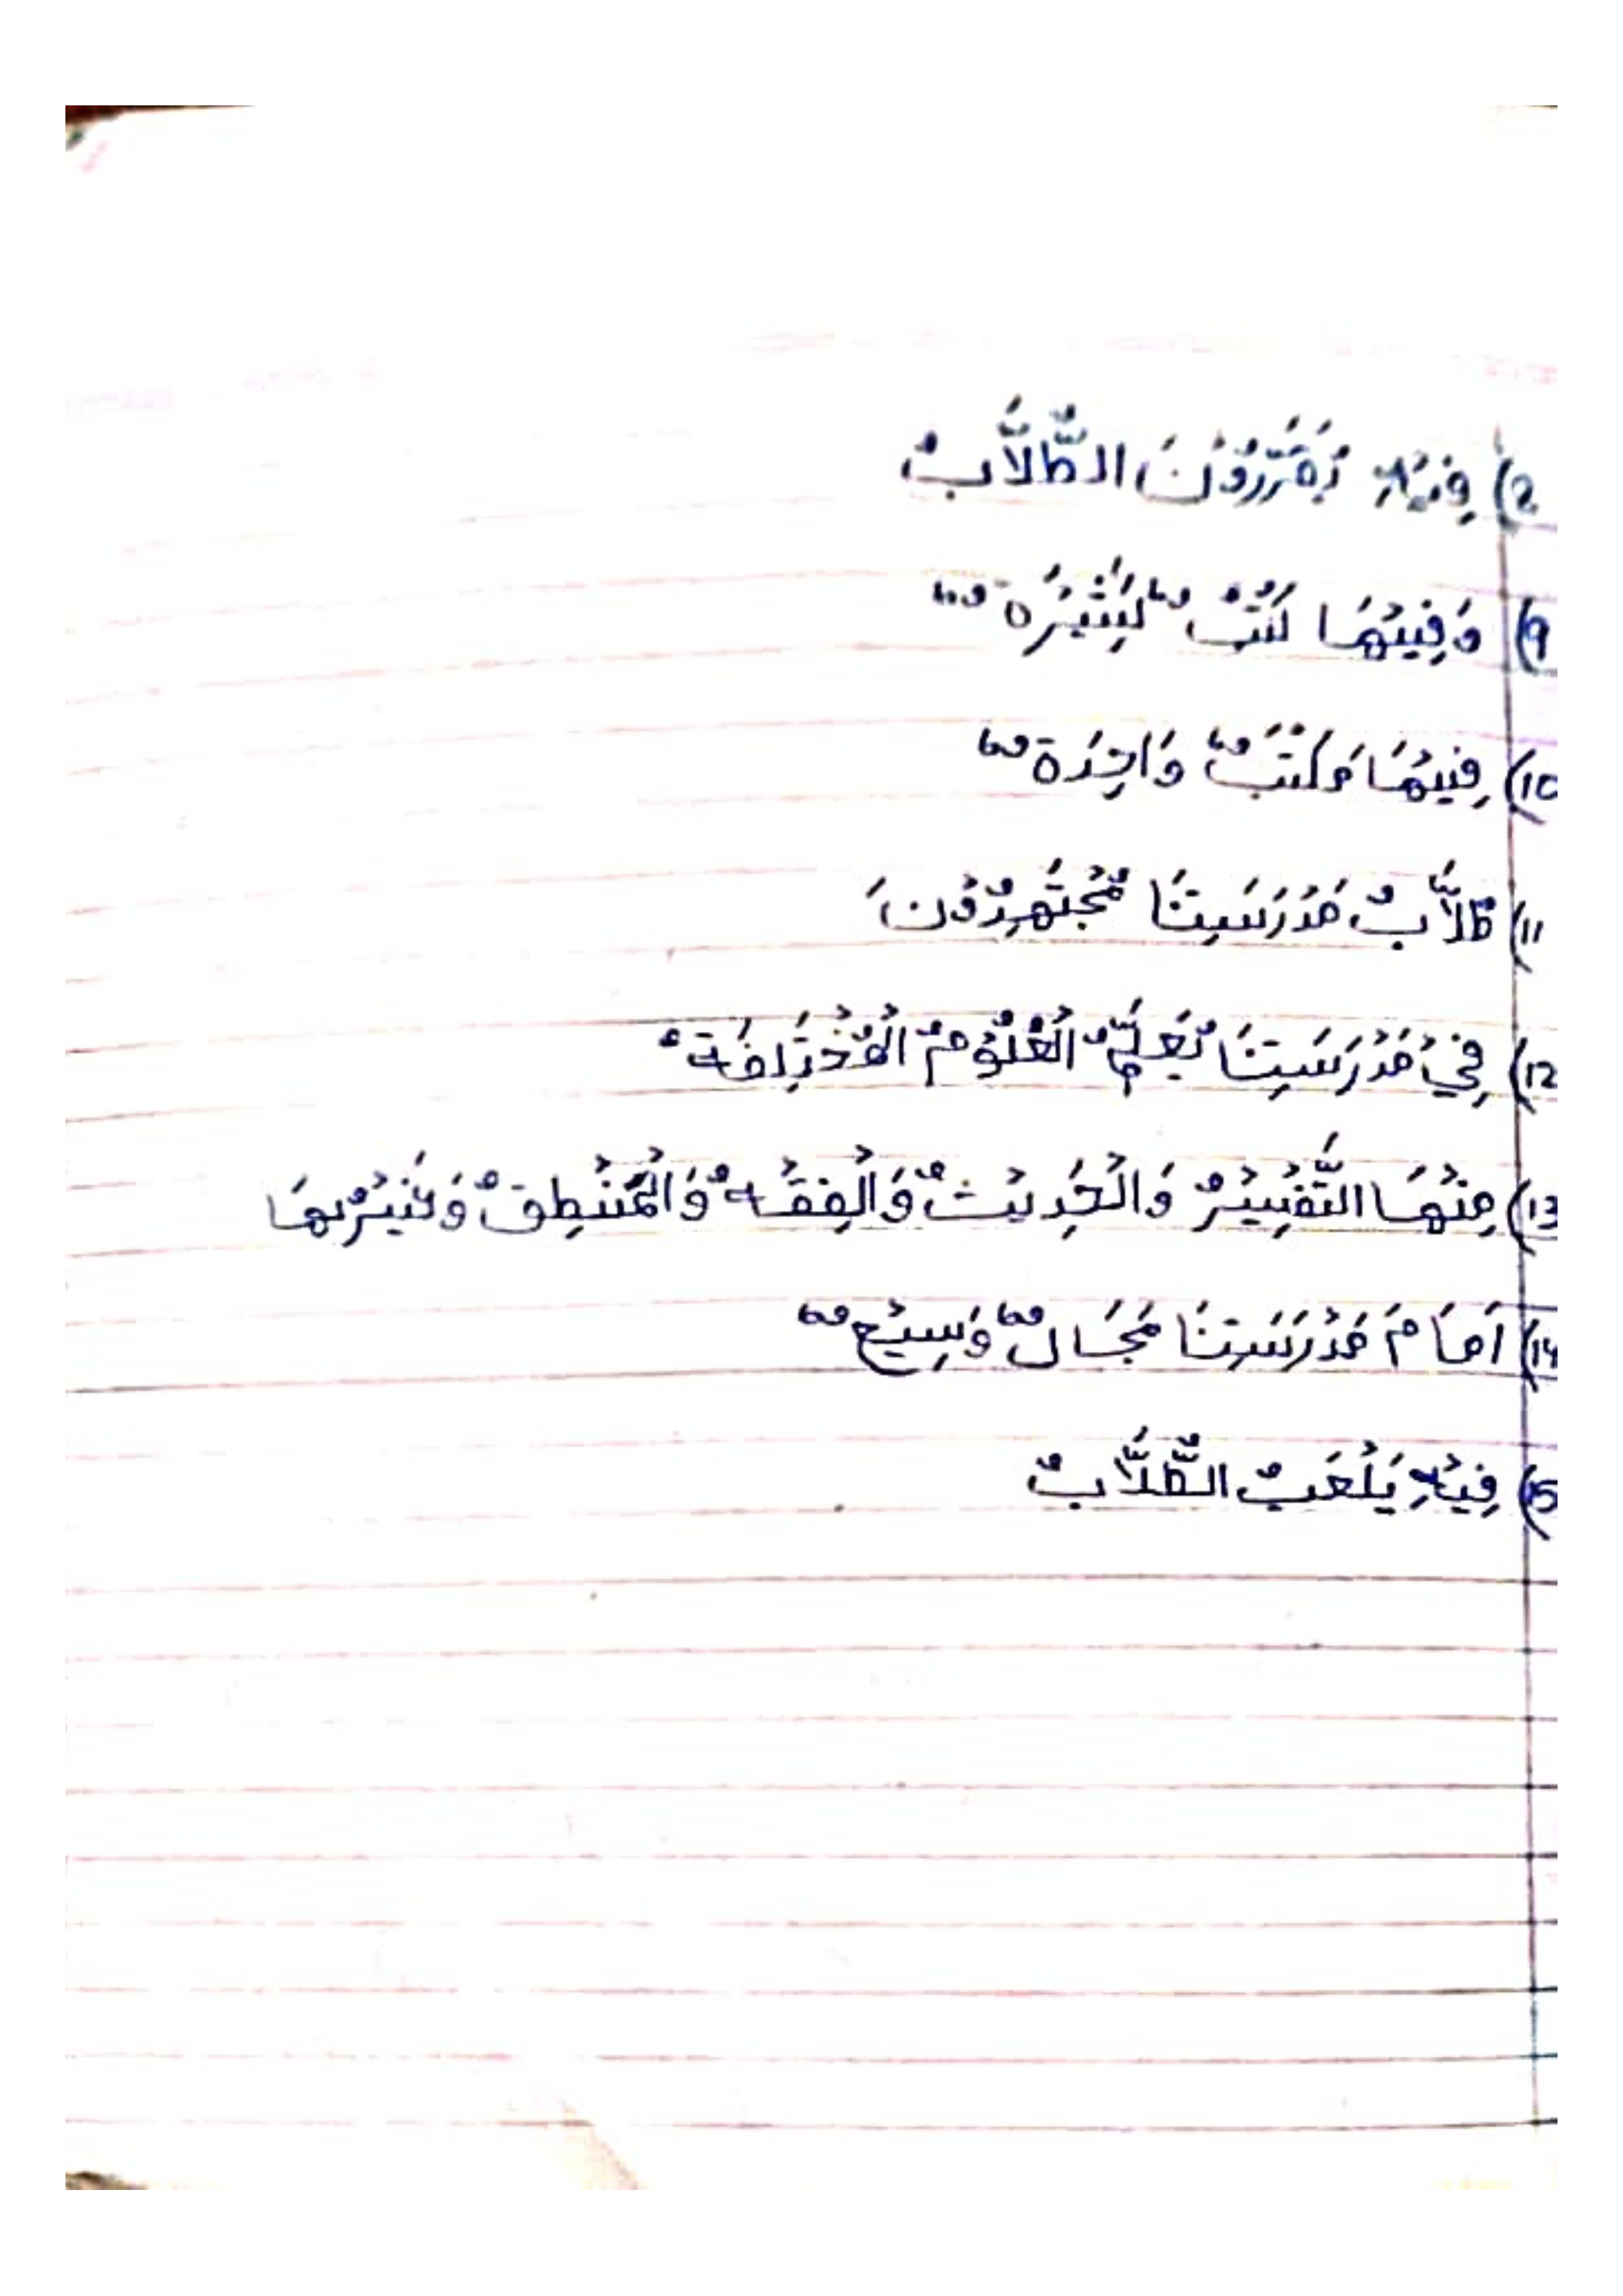 8) فِيْهِ يُقَرِّرُوْنَ الطُّلَّابُ
9) وَفِيْهَا كُتُبٌ كَثِيْرَةٌ
10) فِيْهَا مَكْتَبٌ وَاحِدَةٌ
11) طُلَّابُ مَدْرَسَتِنَا مُجْتَهِدُوْنَ
12) فِيْ مَدْرَسَتِنَا يُعَلَّمُ الْعُلُوْمُ الْمُخْتَلِفَةُ
13) مِنْهَا التَّفْسِيْرُ وَالْحَدِيْثُ وَالْفِقْهُ وَالْمَنْطِقُ وَغَيْرُهَا
14) اَمَامَ مَدْرَسَتِنَا مَجَالٌ وَسِيْعٌ
15) فِيْهِ يَلْعَبُ الطُّلَّابُ